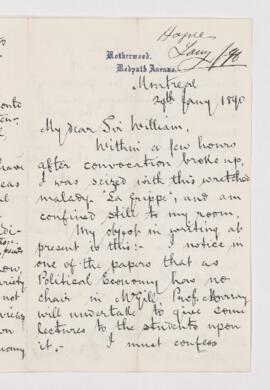 Hayne
Jany/90
Rotherwood.
Redpath Avenue.
Montreal
29th Jany 1890
My dear Sir William,
Within a few hours
after convocation broke up,
I was seized with this wretched
malady "La Grippe", and am
confined still to my room.
My object in writing at
present is this:- I notice in
one of the papers that as
Political Economy has no
chair in McGill, Prof. Murray
will undertake to give some
lectures to the students upon
it. - I must confess